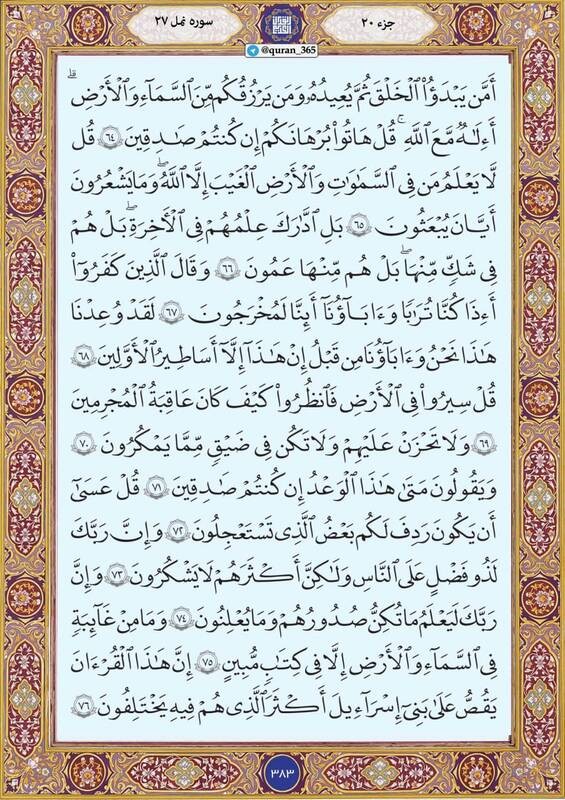 جزء ۲۰
سوره نمل ۲۷
@quran_365
أَمَّن يَبْدَؤُا۟ ٱلْخَلْقَ ثُمَّ يُعِيدُهُۥ وَمَن يَرْزُقُكُم مِّنَ ٱلسَّمَآءِ وَٱلْأَرْضِ
أَءِلَـٰهٌ مَّعَ ٱللَّهِ ۚ قُلْ هَاتُوا۟ بُرْهَـٰنَكُمْ إِن كُنتُمْ صَـٰدِقِينَ ۶۴ قُل
لَّا يَعْلَمُ مَن فِى ٱلسَّمَـٰوَٰتِ وَٱلْأَرْضِ ٱلْغَيْبَ إِلَّا ٱللَّهُ ۚ وَمَا يَشْعُرُونَ
أَيَّانَ يُبْعَثُونَ ۶۵ بَلِ ٱدَّٰرَكَ عِلْمُهُمْ فِى ٱلْـَٔاخِرَةِ ۚ بَلْ هُمْ
فِى شَكٍّ مِّنْهَا ۖ بَلْ هُم مِّنْهَا عَمُونَ ۶۶ وَقَالَ ٱلَّذِينَ كَفَرُوٓا۟
أَءِذَا كُنَّا تُرَٰبًا وَءَابَآؤُنَآ أَئِنَّا لَمُخْرَجُونَ ۶۷ لَقَدْ وُعِدْنَا
هَـٰذَا نَحْنُ وَءَابَآؤُنَا مِن قَبْلُ إِنْ هَـٰذَآ إِلَّآ أَسَـٰطِيرُ ٱلْأَوَّلِينَ ۶۸
قُلْ سِيرُوا۟ فِى ٱلْأَرْضِ فَٱنظُرُوا۟ كَيْفَ كَانَ عَـٰقِبَةُ ٱلْمُجْرِمِينَ
۶۹ وَلَا تَحْزَنْ عَلَيْهِمْ وَلَا تَكُن فِى ضَيْقٍ مِّمَّا يَمْكُرُونَ ۷۰
وَيَقُولُونَ مَتَىٰ هَـٰذَا ٱلْوَعْدُ إِن كُنتُمْ صَـٰدِقِينَ ۷۱ قُلْ عَسَىٰٓ
أَن يَكُونَ رَدِفَ لَكُم بَعْضُ ٱلَّذِى تَسْتَعْجِلُونَ ۷۲ وَإِنَّ رَبَّكَ
لَذُو فَضْلٍ عَلَى ٱلنَّاسِ وَلَـٰكِنَّ أَكْثَرَهُمْ لَا يَشْكُرُونَ ۷۳ وَإِنَّ
رَبَّكَ لَيَعْلَمُ مَا تُكِنُّ صُدُورُهُمْ وَمَا يُعْلِنُونَ ۷۴ وَمَا مِنْ غَآئِبَةٍ
فِى ٱلسَّمَآءِ وَٱلْأَرْضِ إِلَّا فِى كِتَـٰبٍ مُّبِينٍ ۷۵ إِنَّ هَـٰذَا ٱلْقُرْءَانَ
يَقُصُّ عَلَىٰ بَنِىٓ إِسْرَٰٓءِيلَ أَكْثَرَ ٱلَّذِى هُمْ فِيهِ يَخْتَلِفُونَ ۷۶
۳۸۳